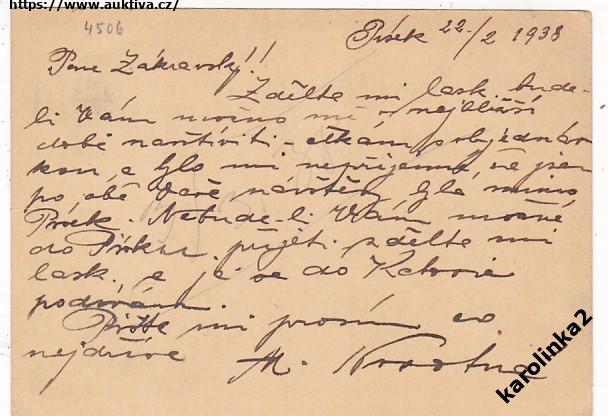 https://www.auktiva.cz/
4506
Písek 22./2 1938
Pane Zákravský!!
Zdělte mi lask. bude-
li Vám možno mě v nejbližší
době navštíviti – čekám s objednáv
kou, a bylo mi nepříjemné, že jsem
po obě Vaše návštěvy byla mimo
Písek. Nebude-li Vám možné
do Písku přijeti zdělte mi
lask. a já se do
podívám.
Pište mi prosím co
nejdříve M. Novotná
karolinka2